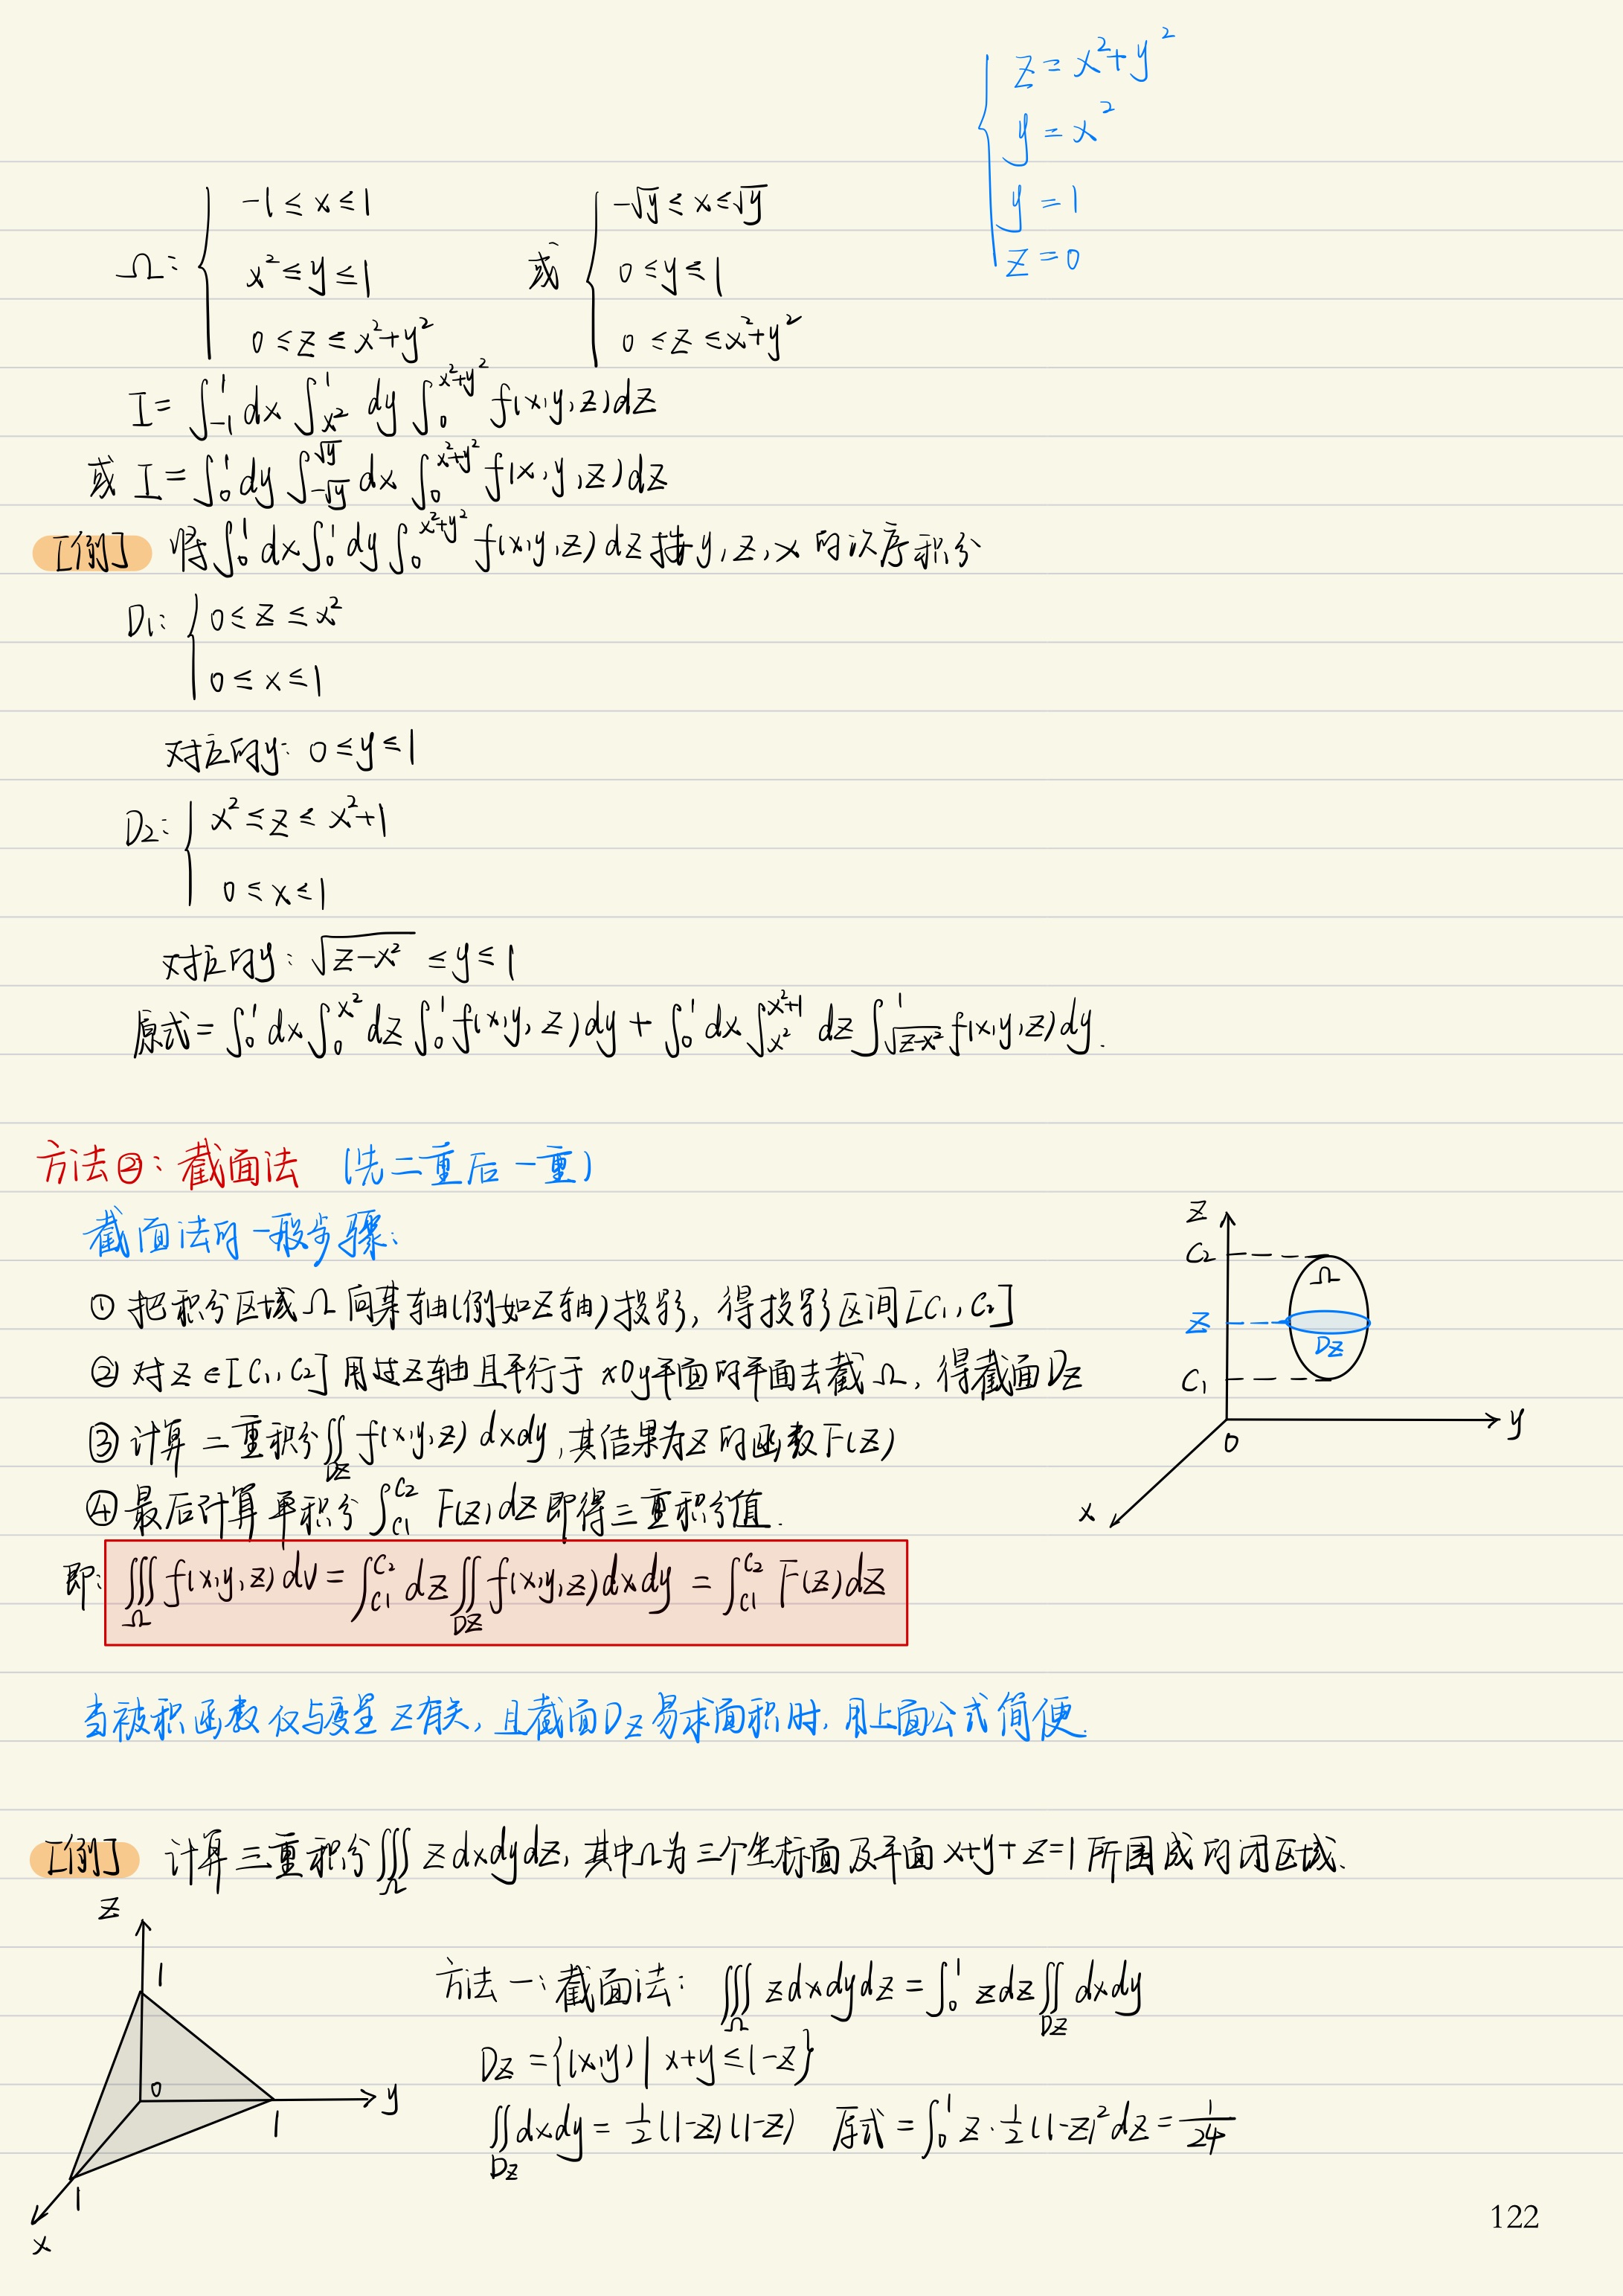 { z = x²+y²
y = x²
y = 1
z = 0
Ω: { -1 ≤ x ≤ 1
x² ≤ y ≤ 1
0 ≤ z ≤ x²+y²
或 { -√y ≤ x ≤ √y
0 ≤ y ≤ 1
0 ≤ z ≤ x²+y²
I = ∫_{-1}^{1} dx ∫_{x²}^{1} dy ∫_{0}^{x²+y²} f(x,y,z) dz
或 I = ∫_{0}^{1} dy ∫_{-√y}^{√y} dx ∫_{0}^{x²+y²} f(x,y,z) dz
[例] 将 ∫_{0}^{1} dx ∫_{0}^{1} dy ∫_{0}^{x²+y²} f(x,y,z) dz 按 y, z, x 的次序积分
D1: { 0 ≤ z ≤ x²
0 ≤ x ≤ 1
对应的y: 0 ≤ y ≤ 1
D2: { x² ≤ z ≤ x²+1
0 ≤ x ≤ 1
对应的y: √(z-x²) ≤ y ≤ 1
原式 = ∫_{0}^{1} dx ∫_{0}^{x²} dz ∫_{0}^{1} f(x,y,z) dy + ∫_{0}^{1} dx ∫_{x²}^{x²+1} dz ∫_{√(z-x²)}^{1} f(x,y,z) dy.
方法②: 截面法 (先二重后一重)
截面法的一般步骤:
① 把积分区域Ω向某轴(例如z轴)投影, 得投影区间[C₁, C₂]
② 对z∈[C₁, C₂] 用过z轴且平行于xOy平面的平面去截Ω, 得截面Dz
③ 计算二重积分∬_{Dz} f(x,y,z) dxdy, 其结果为z的函数F(z)
④ 最后计算单积分 ∫_{C1}^{C2} F(z) dz 即得三重积分值.
z
C2
Ω
z
Dz
C1
0
y
x
即: ∭_Ω f(x,y,z) dv = ∫_{C1}^{C2} dz ∬_{Dz} f(x,y,z) dxdy = ∫_{C1}^{C2} F(z) dz
当被积函数仅与变量z有关, 且截面Dz易求面积时, 用上面公式简便.
[例] 计算三重积分∭_Ω z dxdydz, 其中Ω为三个坐标面及平面x+y+z=1所围成的闭区域.
z
1
0
y
1
1
x
方法一: 截面法: ∭_Ω z dxdydz = ∫_{0}^{1} z dz ∬_{Dz} dxdy
Dz = {(x,y) | x+y ≤ 1-z}
∬_{Dz} dxdy = 1/2 (1-z)(1-z) 原式 = ∫_{0}^{1} z · 1/2 (1-z)² dz = 1/24
122